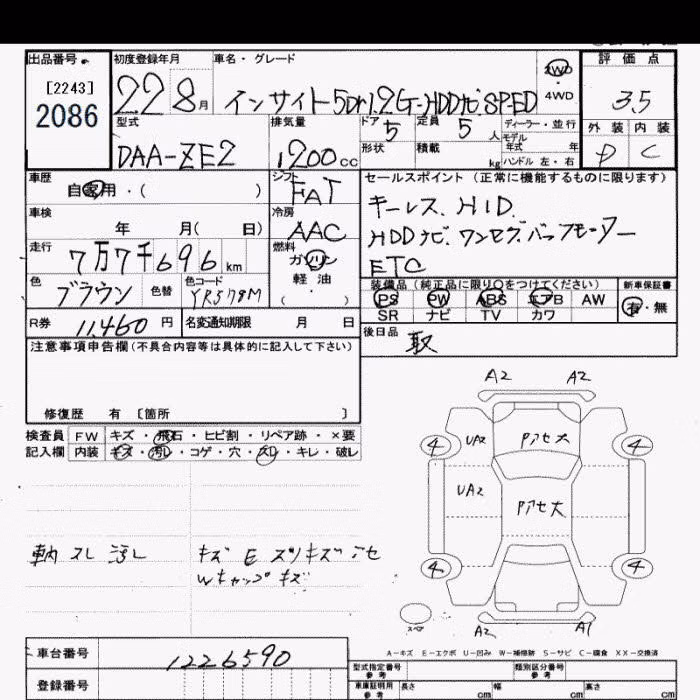 出品番号
[2243]
2086
初度登録年月
22 8月
車名・グレード
インサイト5Dr1.2G-HDDナビSP-ED
2WD
4WD
評価点
3.5
外装 内装
D C
型式
DAA-ZE2
排気量
1200cc
ドア 5
定員 5人
ディーラー・並行
モデル年式 年
形状
積載 kg
ハンドル 左・右
車歴
自家用・( )
シフト
FAT
セールスポイント(正常に機能するものに限ります)
キーレス、HID、
HDDナビ、ワンセグ、
ETC
車検
年 月( 日)
冷房
AAC
走行
7万7千696km
燃料
ガソリン
軽油
( )
色
ブラウン
色替
色コード
YR578M
装備品(純正品に限り○をつけてください)
PS PW ABS エアB AW
SR ナビ TV カワ
新車保証書
有・無
R券
11,460円
名変通知期限 月 日
後日品
取
注意事項申告欄(不具合内容等は具体的に記入して下さい)
修復歴 有 [箇所 ]
検査員 FW キズ・飛石・ヒビ割・リペア跡・×要
記入欄 内装 キズ・汚レ・コゲ・穴・スレ・キレ・破レ
A2 A2
4 UA2 Pアセ大 4
UA2 Pアセ大
4 4
スペア
A2 A1
車内 スレ 汚レ
キズ E スリキズ アセ
Wキャップキズ
A−キズ E−エクボ U−凹み W−補修跡 S−サビ C−腐食 XX−交換済
車台番号
1226590
登録番号
型式指定番号 参考
類別区分番号 参考
車庫証明用 参考
長さ cm
幅 cm
高さ cm